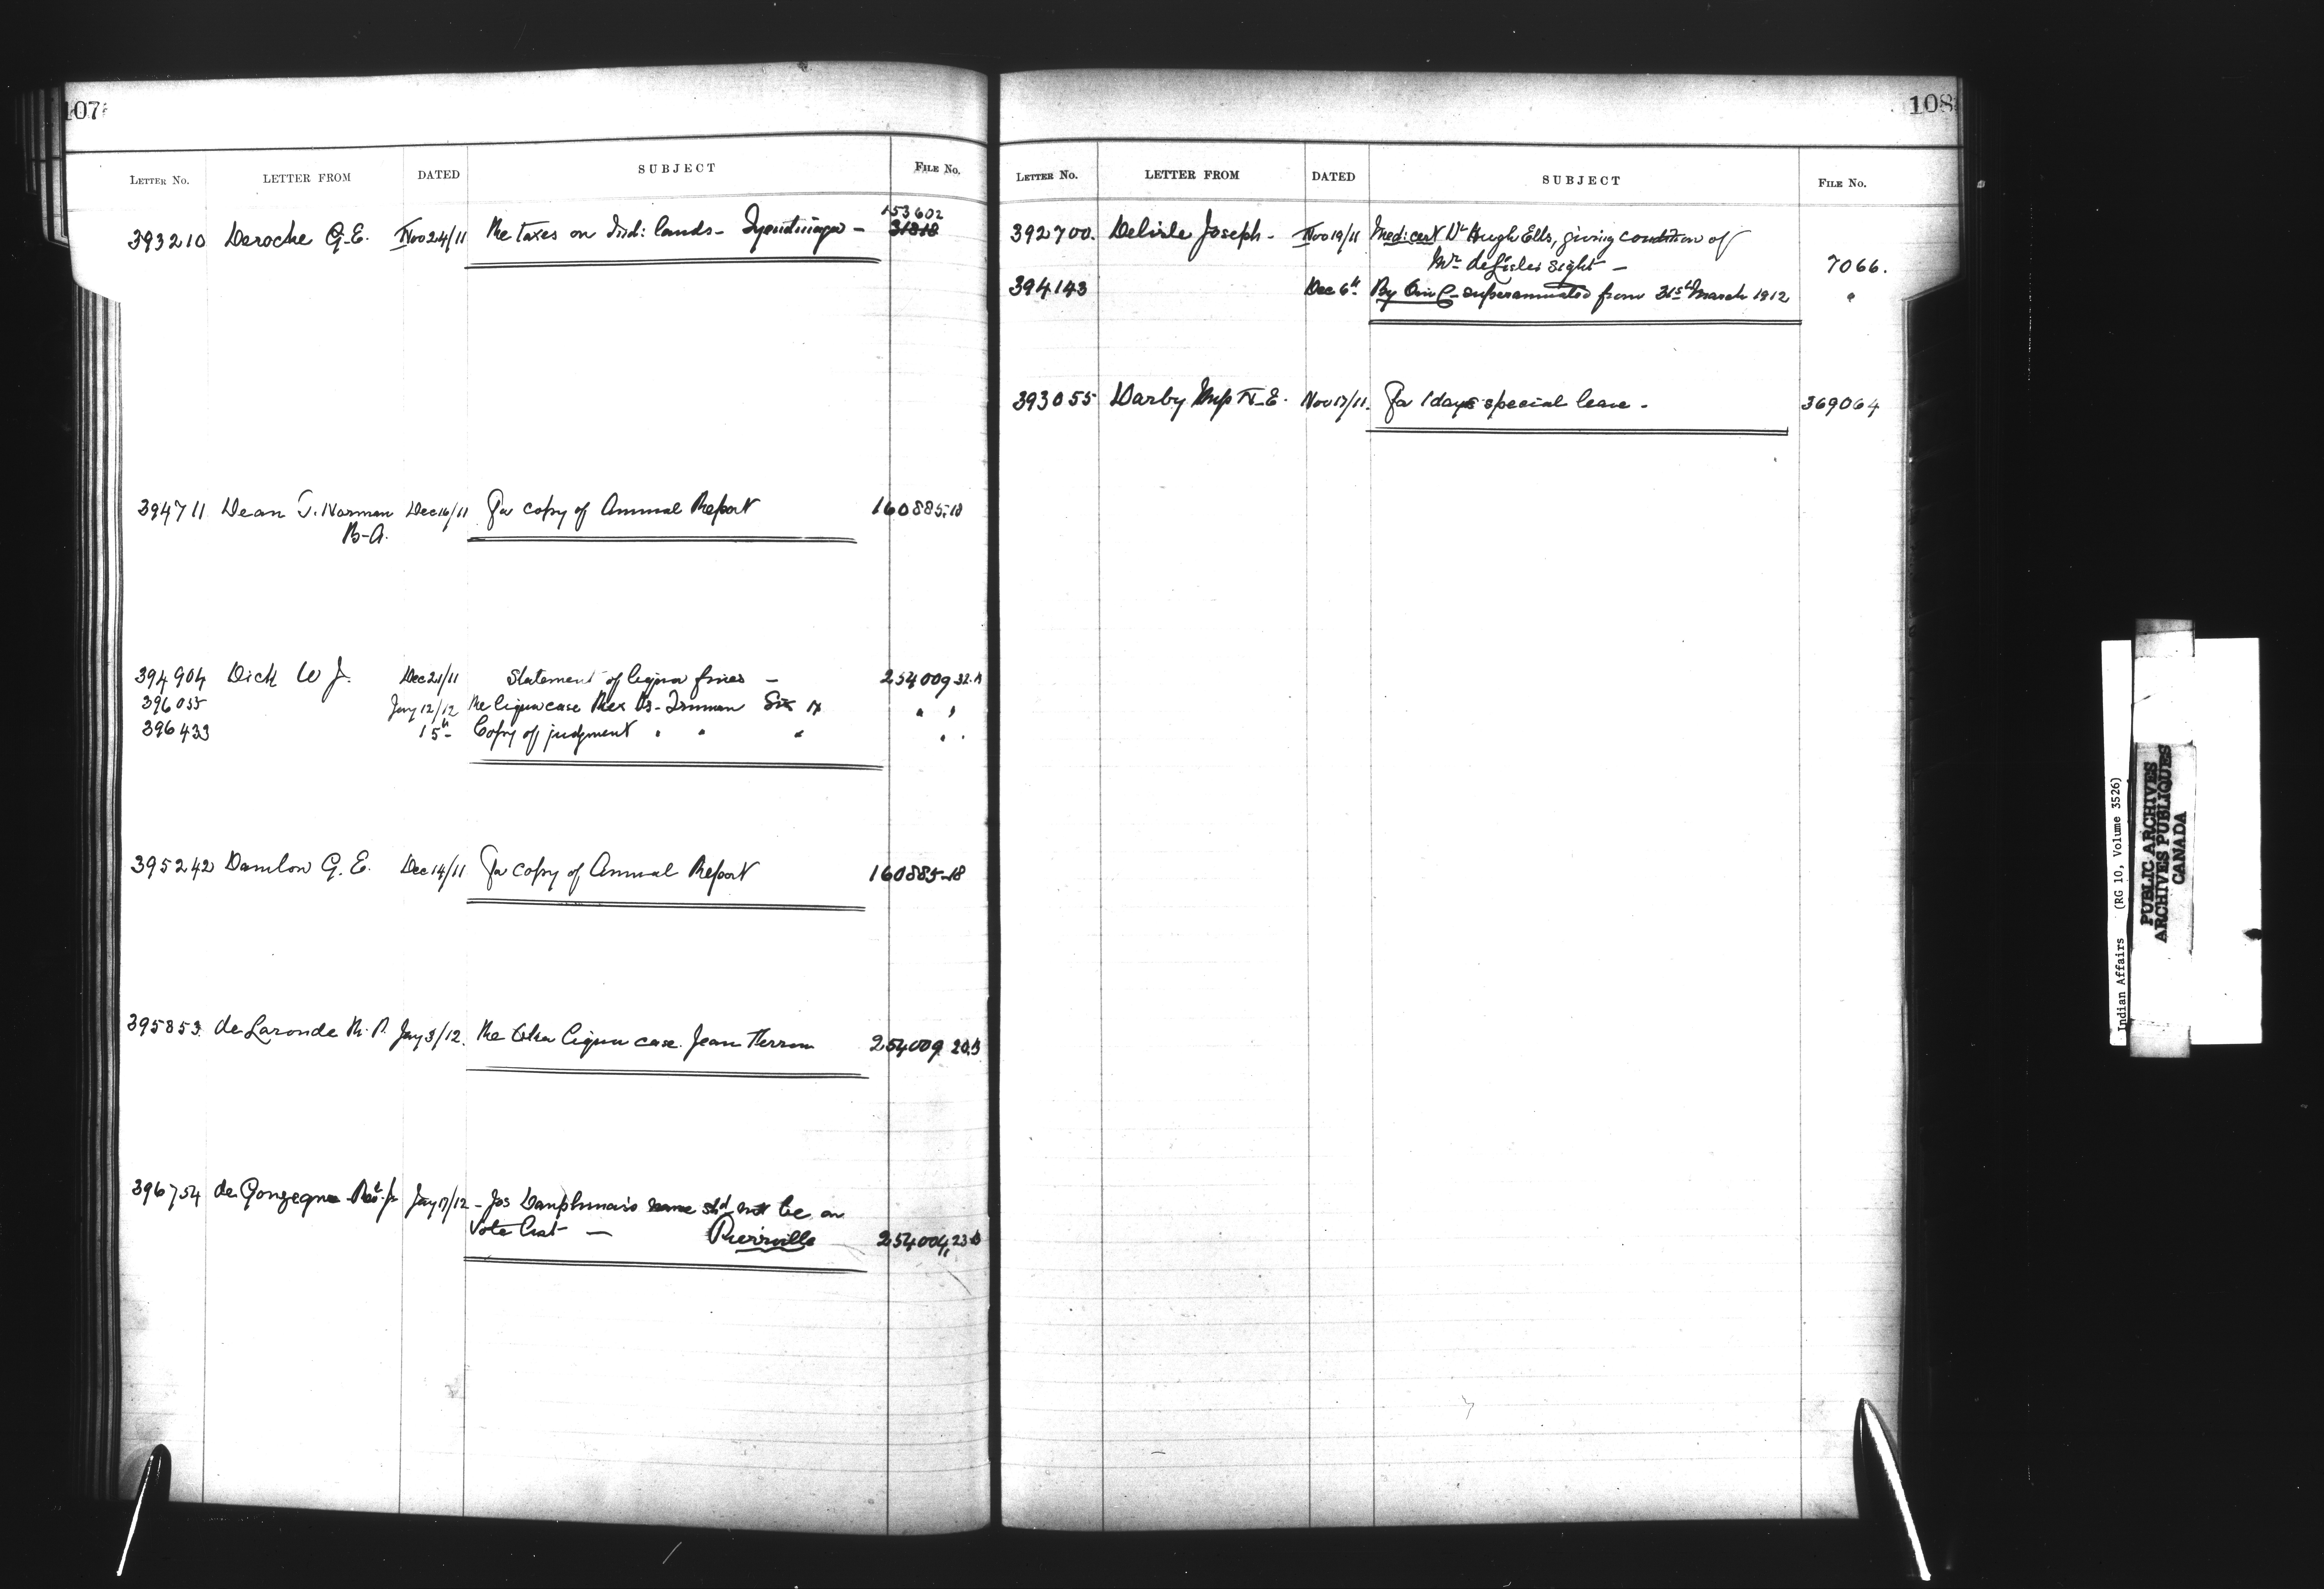 107
LETTER NO. LETTER FROM DATED SUBJECT FILE NO.
153602
393210 Deroche G.E. Nov 24/11 Re taxes on Ind: lands - Tyendinaga - 31818
394711 Dean J. Norman Dec 16/11 For copy of Annual Report 160885-18
B-A.
394904 Dick W J. Dec 21/11 Statement of liquor fines - 254009 32-A
396055 Jany 12/12 Re liquor case Rex Vs-
396433 15th Copy of judgment " " " " "
395242 Damlow G. E. Dec 14/11 For copy of Annual Report 160885-18
395853 de Laronde R. P. Jany 3/12. Re liquor case Jean Therrou 254009 20.B
396754 de Gonzague Revd. Jany 17/12 - Jos Dauphinais name shd not be on
Vote list - Pierriville 254004,23-B
108
LETTER NO. LETTER FROM DATED SUBJECT FILE NO.
392700. Delisle Joseph - Nov 19/11 Medi: cert Dr Hugh Ells, giving condition of
Mr. deLisles sight - 7066.
394143 Dec 6th By O in C - superannuated from 31st March 1912 "
393055 Darby N-E. Nov 17/11. For 1 days special leave - 369064
Indian Affairs (RG 10, Volume 3526)
PUBLIC ARCHIVES
ARCHIVES PUBLIQUES
CANADA